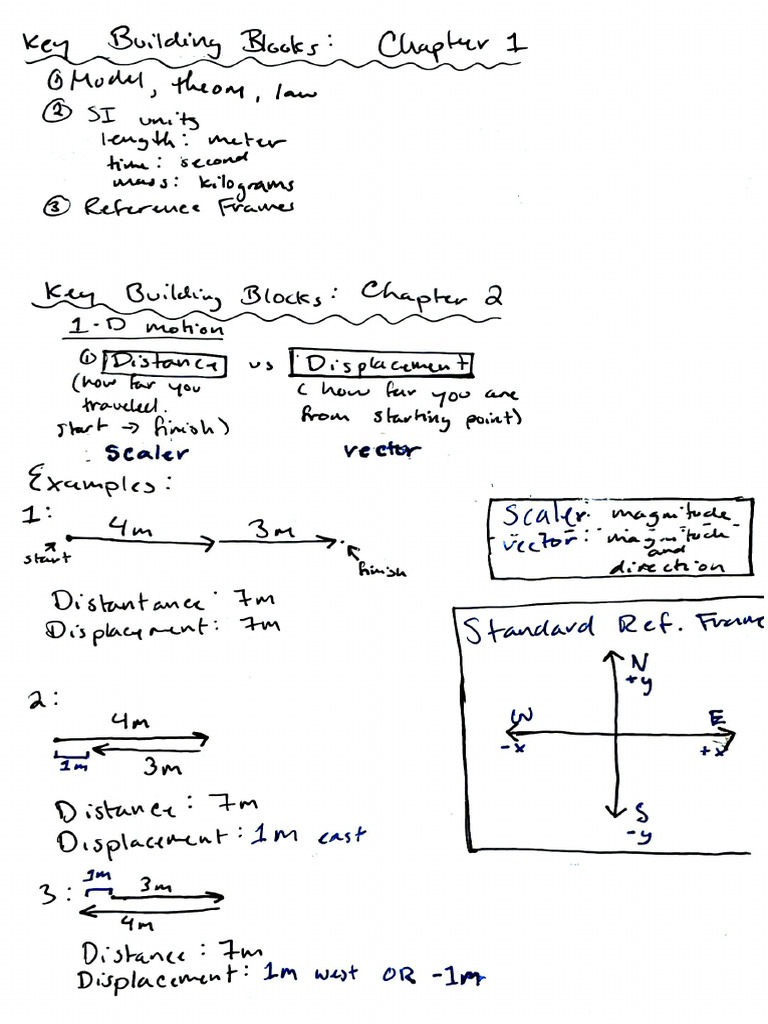 Key Building Blocks: Chapter 1
① Model, theory, law
② SI units
length: meter
time: second
mass: kilograms
③ Reference Frames
Key Building Blocks: Chapter 2
1-D motion
① Distance vs Displacement
(how far you
traveled.
start → finish)
(how far you are
from starting point)
scaler
vector
Examples:
1:
4m 3m
start
finish
Distantance: 7m
Displacement: 7m
Scaler: magnitude
vector: magnitude
and
direction
Standard Ref. Frame
N
+y
W
-x
E
+x
S
-y
2:
4m
1m
3m
Distance: 7m
Displacement: 1m east
3:
1m 3m
4m
Distance: 7m
Displacement: 1m west OR -1m